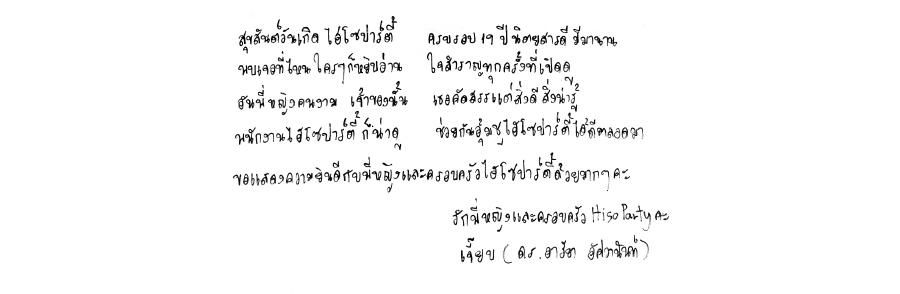 สุขสันต์วันเกิด ไฮโซปาร์ตี้ ครบรอบ 19 ปี นิตยสารดี มีมานาน
พบเจอที่ไหน ใครๆก็หยิบอ่าน ใจสำราญทุกครั้งที่เปิดดู
อันพี่หญิงคนงาม เจ้าของนั้น เธอคัดสรรแต่สิ่งดี สิ่งน่ารู้
พนักงานไฮโซปาร์ตี้ ก็น่าดู ช่วยกันอุ้มชูไฮโซปาร์ตี้ได้ดีตลอดมา
ขอแสดงความยินดีกับพี่หญิงและครอบครัวไฮโซปาร์ตี้ด้วยมากๆคะ
รักพี่หญิงและครอบครัว Hiso Party คะ
เจี๊ยบ (ดร. อาริตา อัศวานันท์)